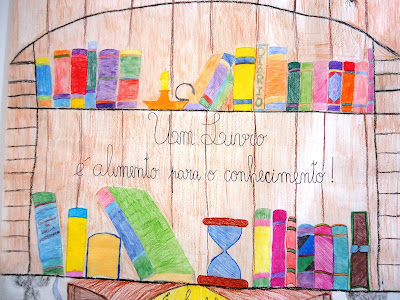 DIÁRIO
Um Livro
é alimento para o conhecimento!